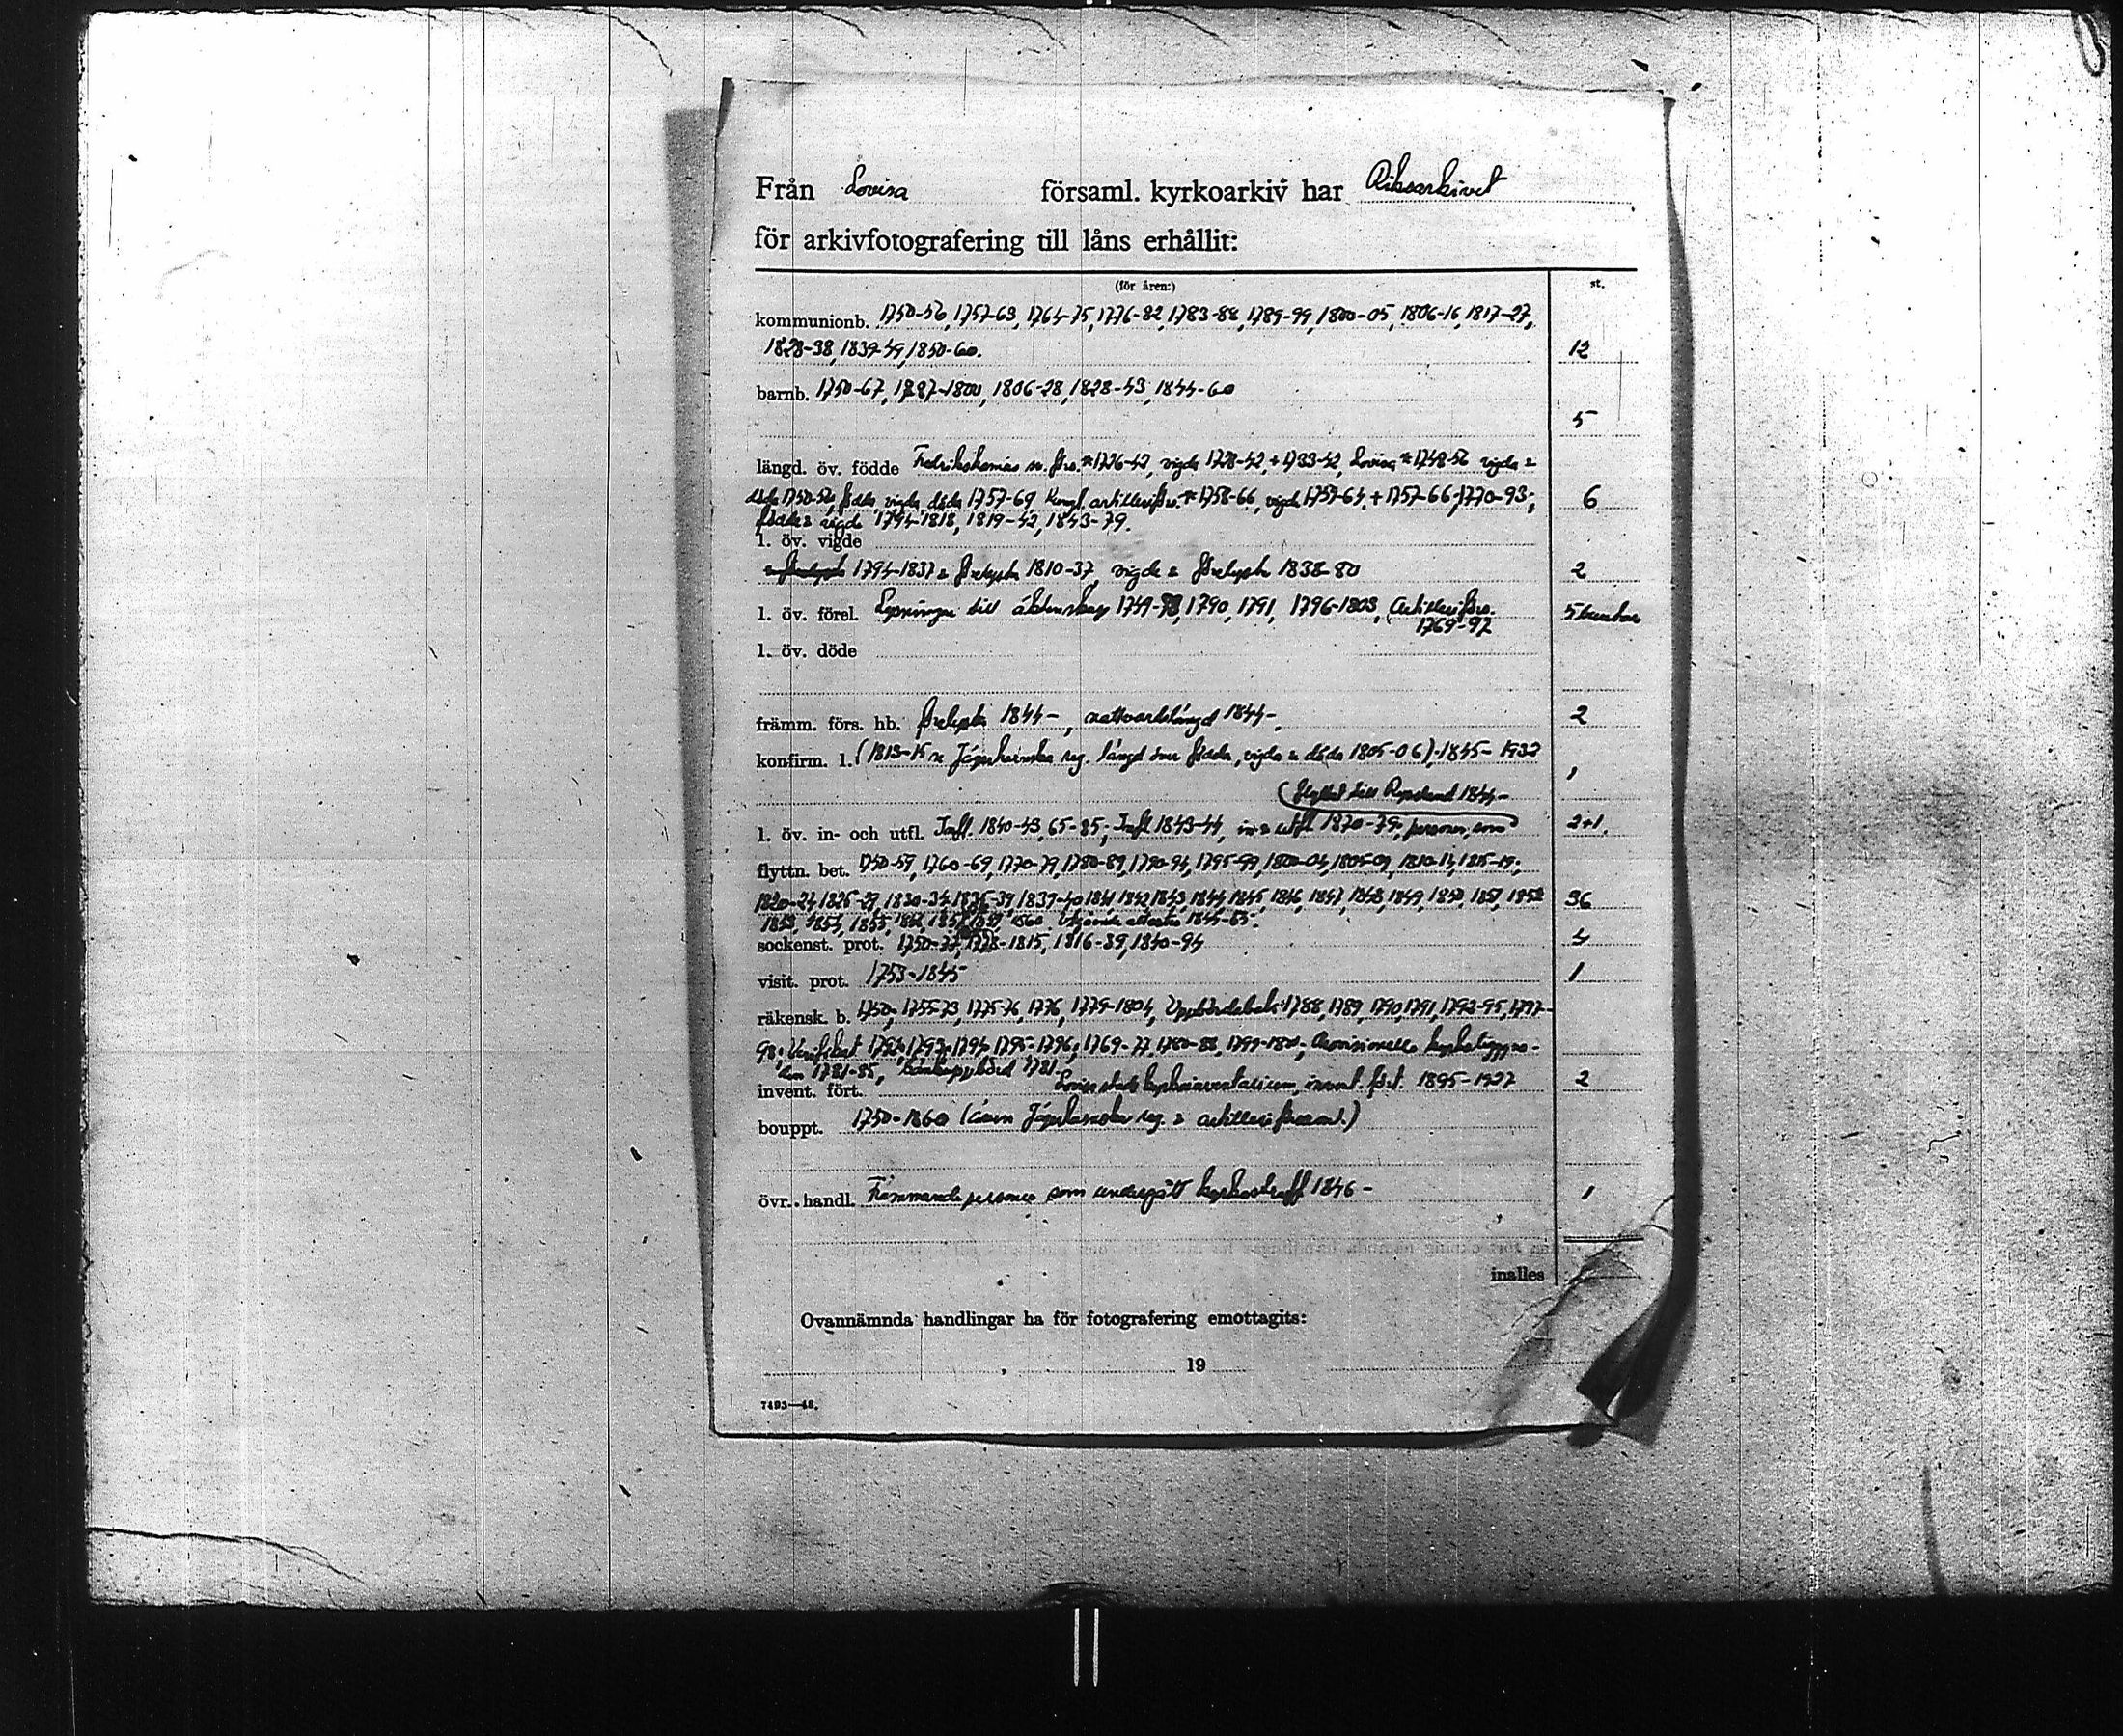 Från Lovisa församl. kyrkoarkiv har Riksarkivet
för arkivfotografering till låns erhållit:
(för åren:) st.
kommunionb. 1750-56, 1757-63, 1764-75, 1776-82, 1783-88, 1789-99, 1800-05, 1806-16, 1817-27,
1828-38, 1839-49, 1850-60. 12
barnb. 1750-67, 1787-1800, 1806-28, 1828-43, 1844-60
5
längd. öv. födde Fredrikshamns sv. förs. *1726-42, vigda 1728-42, +1733-42, Lovisa *1748-56 vigda &
döda 1750-56, födda, vigda, döda 1757-69, Kungl. artilleriförs. *1758-66, vigde 1757-64, +1757-66, 1770-93; 6
födda & vigde 1794-1818, 1819-42, 1843-79.
l. öv. vigde
1794-1837 & förelysta 1810-37, vigde & förelysta 1838-80 2
l. öv. förel. Lysningar till äktenskap 1749-78, 1790, 1791, 1796-1803, (Artilleriförs. 5 buntar
1769-92
l. öv. döde
främm. förs. hb. förelysta 1844-, nattvardslängd 1844-. 2
konfirm. l. (1813-15 & Jägerhornska reg. längd över födda, vigda & döda 1805-06), 1845-1932
1
(flyttat till Ryssland 1844-
l. öv. in- och utfl. Infl. 1840-43, 65-85; Infl 1843-44, in & utfl 1870-79; personer, som 2+1.
flyttn. bet. 1750-59, 1760-69, 1770-79, 1780-89, 1790-94, 1795-99, 1800-04, 1805-09, 1810-14, 1815-19;
1820-24, 1825-29, 1830-34, 1835-39, 1839-40, 1841, 1842, 1843, 1844, 1845, 1846, 1847, 1848, 1849, 1850, 1851, 1852 36
1853, 1854, 1855, 1860 attester 1844-53.
sockenst. prot. 1750-77, 1778-1815, 1816-39, 1840-94 4
visit. prot. 1753-1845 1
räkensk. b. 1750, 1755-73, 1775-76, 1776, 1779-1804, Uppbördsbok 1788, 1789, 1790, 1791, 1792-95, 1797-
98; Verifikat 1792, 1793, 1794, 1795-1796; 1769-77, 1780-88, 1799-1801, Provisionella kyrkobyggna-
den 1781-85, bänkuppbörd 1781.
invent. fört. Lovisa stads kyrkoinventarium, invent. fört. 1895-1927 2
bouppt. 1750-1860 (även Jägerhornska reg. & artilleriförsaml.)
övr. handl. Främmande personer som undergått kyrkostraff 1846- 1
inalles
Ovannämnda handlingar ha för fotografering emottagits:
, 19
7493—48.